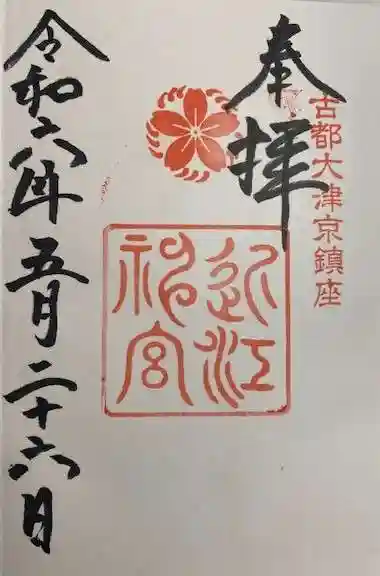 奉拝
古都大津京鎮座
近江
神宮
令和六年五月二十六日